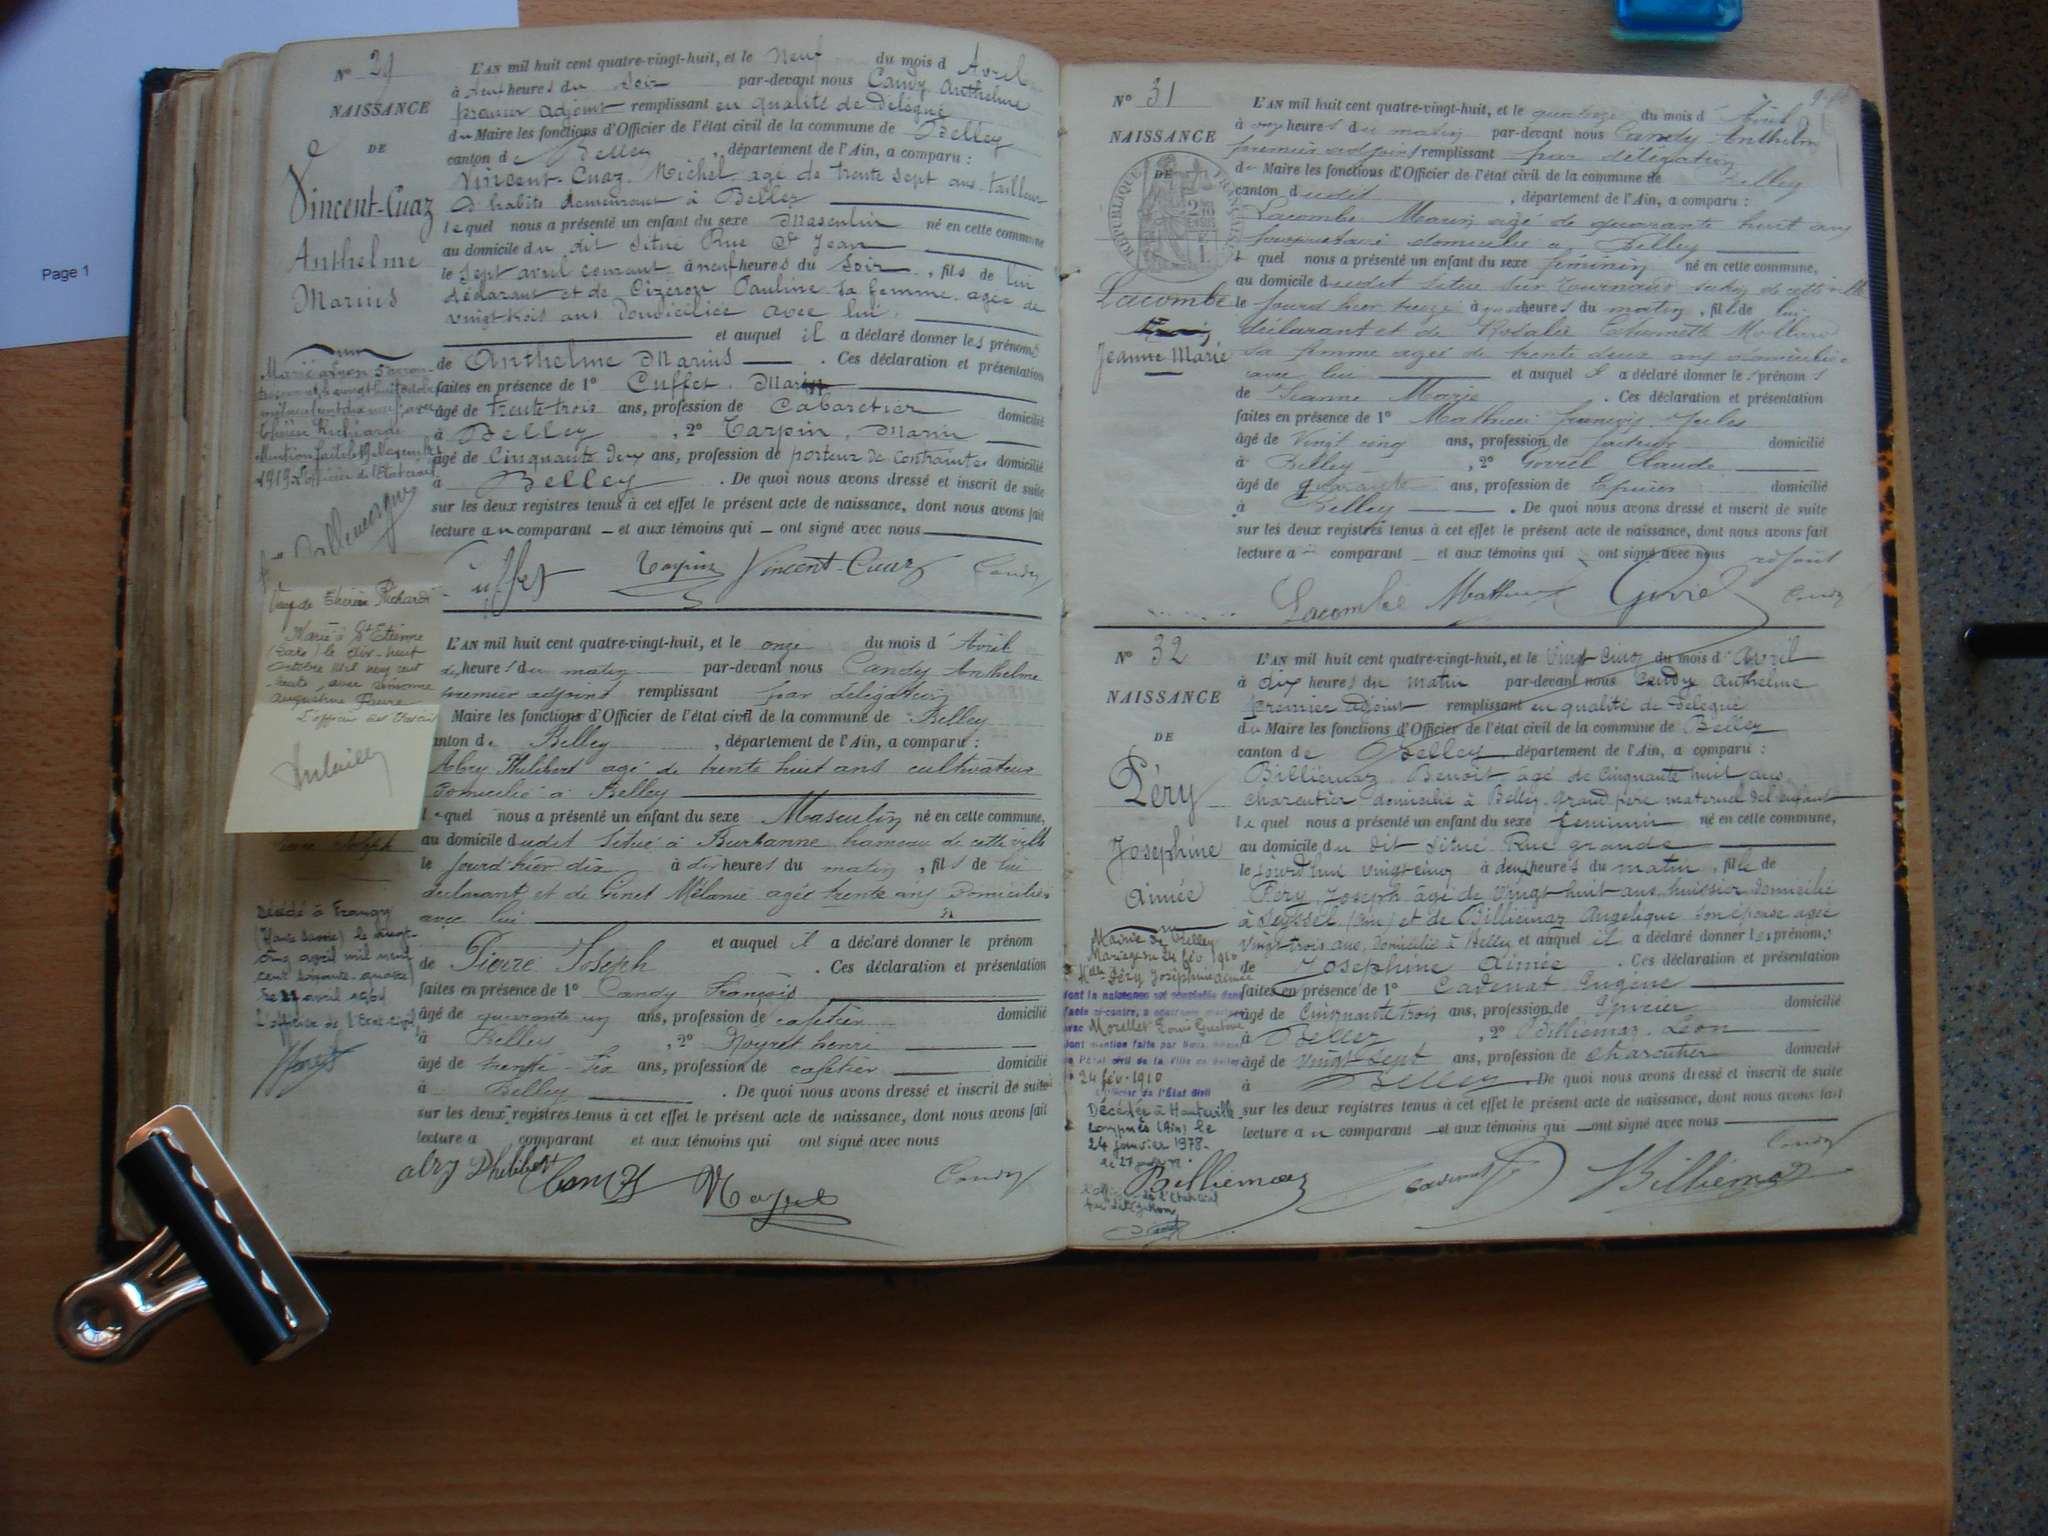 Page 1
N° 29
NAISSANCE
DE
Vincent-Cuaz
Anthelme
Marius
L'AN mil huit cent quatre-vingt-huit, et le Neuf du mois d Avril
à neuf heures du Soir par-devant nous Candy Anthelme
premier adjoint remplissant en qualité de Délégué
du Maire les fonctions d'Officier de l'état civil de la commune de Belley
canton de Belley, département de l'Ain, a comparu :
Vincent-Cuaz Michel agé de trente sept ans tailleur
d'habits demeurant à Belley
lequel nous a présenté un enfant du sexe Masculin né en cette commune
au domicile du dit situé Rue St Jean
le sept avril courant à neuf heures du Soir, fils de lui
déclarant et de Cizeron Pauline sa femme agée de
vingt trois ans domiciliée avec lui,
et auquel il a déclaré donner les prénoms
de Anthelme Marius. Ces déclaration et présentation
faites en présence de 1° Cuffet, Marin
âgé de trente trois ans, profession de Cabaretier domicilié
à Belley, 2° Tarpin, Marin
âgé de Cinquante deux ans, profession de porteur de contraintes domicilié
à Belley. De quoi nous avons dressé et inscrit de suite
sur les deux registres tenus à cet effet le présent acte de naissance, dont nous avons fait
lecture au comparant et aux témoins qui ont signé avec nous
Cuffet Tarpin Vincent-Cuaz Candy
Marié à Lyon
Thérèse Richard
1919 L'officier de l'Etat civil
Veuf de Thérèse Richard
Marié à St Etienne
(Loire) le dix-huit
octobre mil neuf cent
trente, avec Simone
Augustine Faure
L'officier de l'Etat civil
L'AN mil huit cent quatre-vingt-huit, et le onze du mois d'Avril
dix heures du matin par-devant nous Candy Anthelme
premier adjoint remplissant par délégation
Maire les fonctions d'Officier de l'état civil de la commune de Belley
canton de Belley, département de l'Ain, a comparu :
Abry Philibert agé de trente huit ans cultivateur
domicilié à Belley
lequel nous a présenté un enfant du sexe Masculin né en cette commune,
au domicile dudit situé à Burbanne hameau de cette ville
le jourd'hier dix à dix heures du matin, fils de lui
déclarant et de Ginet Mélanie agée trente ans domiciliée
avec lui
et auquel il a déclaré donner le prénom
de Pierre Joseph. Ces déclaration et présentation
faites en présence de 1° Candy François
âgé de quarante un ans, profession de cafetier domicilié
à Belley, 2° Noyret henri
âgé de trente-six ans, profession de cafetier domicilié
à Belley. De quoi nous avons dressé et inscrit de suite
sur les deux registres tenus à cet effet le présent acte de naissance, dont nous avons fait
lecture a comparant et aux témoins qui ont signé avec nous
abry Philibert Candy Noyret Candy
Pierre Joseph
Décédé à Frangy
(Haute Savoie) le vingt-
cinq avril mil neuf
cent soixante quatre
L'officier de l'Etat civil,
N° 31
NAISSANCE
DE
RÉPUBLIQUE FRANÇAISE
Lacombe
Jeanne Marie
L'AN mil huit cent quatre-vingt-huit, et le quatorze du mois d'Avril
à onze heures du matin par-devant nous Candy Anthelme
premier adjoint remplissant par délégation
du Maire les fonctions d'Officier de l'état civil de la commune de Belley
canton dudit, département de l'Ain, a comparu :
Lacombe Marin agé de quarante huit ans
propriétaire domicilié à Belley
l quel nous a présenté un enfant du sexe féminin né en cette commune,
au domicile dudit situé sur Tournaus de cette ville
le jourd hier treize à heures du matin, fille de lui
déclarant et de Rosalie
sa femme agée de trente deux ans domiciliée
avec lui et auquel il a déclaré donner les prénoms
de Jeanne Marie. Ces déclaration et présentation
faites en présence de 1° Mathieu françois Jules
âgé de Vingt cinq ans, profession de facteur domicilié
à Belley, 2° Govrel Claude
âgé de quarante ans, profession de Epicier domicilié
à Belley. De quoi nous avons dressé et inscrit de suite
sur les deux registres tenus à cet effet le présent acte de naissance, dont nous avons fait
lecture a comparant et aux témoins qui ont signé avec nous
Lacombe Mathieu Candy
N° 32
NAISSANCE
DE
Péry
Josephine
Aimée
L'AN mil huit cent quatre-vingt-huit, et le Vingt Cinq du mois d'Avril
à dix heures du matin par-devant nous Candy Anthelme
premier adjoint remplissant en qualité de Délégué
du Maire les fonctions d'Officier de l'état civil de la commune de Belley
canton de Belley département de l'Ain, a comparu :
Billiémaz Benoit agé de Cinquante huit ans
charcutier domicilié à Belley grand père maternel de l'enfant
lequel nous a présenté un enfant du sexe feminin né en cette commune,
au domicile du dit situé Rue grande
le jourd'hui vingt cinq à deux heures du matin, fille de
Péry Joseph âgé de Vingt huit ans huissier domicilié
à Seyssel (Ain) et de Billiemaz Angelique son épouse agée
vingt trois ans, domiciliée à Belley et auquel il a déclaré donner les prénoms
de Josephine Aimée. Ces déclaration et présentation
faites en présence de 1° Cavenat Eugène
âgé de Cinquante trois ans, profession de Epicier domicilié
à Belley, 2° Billiemaz Léon
âgé de vingt sept ans, profession de charcutier domicilié
à Belley. De quoi nous avons dressé et inscrit de suite
sur les deux registres tenus à cet effet le présent acte de naissance, dont nous avons fait
lecture au comparant et aux témoins qui ont signé avec nous
Candy
Billiemaz Cavenat Billiemaz
Mairie de Belley
Mariage du 24 fév. 1910
Mlle Péry Joséphine Aimée
dont la naissance est constatée dans
l'acte ci-contre, a contracté mariage
avec Morellet Louis Gustave
dont mention faite par Nous, officier
de l'état civil de la Ville de Belley
24 fév. 1910
L'Officier de l'État Civil
Décédée à Hauteville
Lompnes (Ain) le
24 janvier 1978.
L'officier de l'Etat civil
par délégation